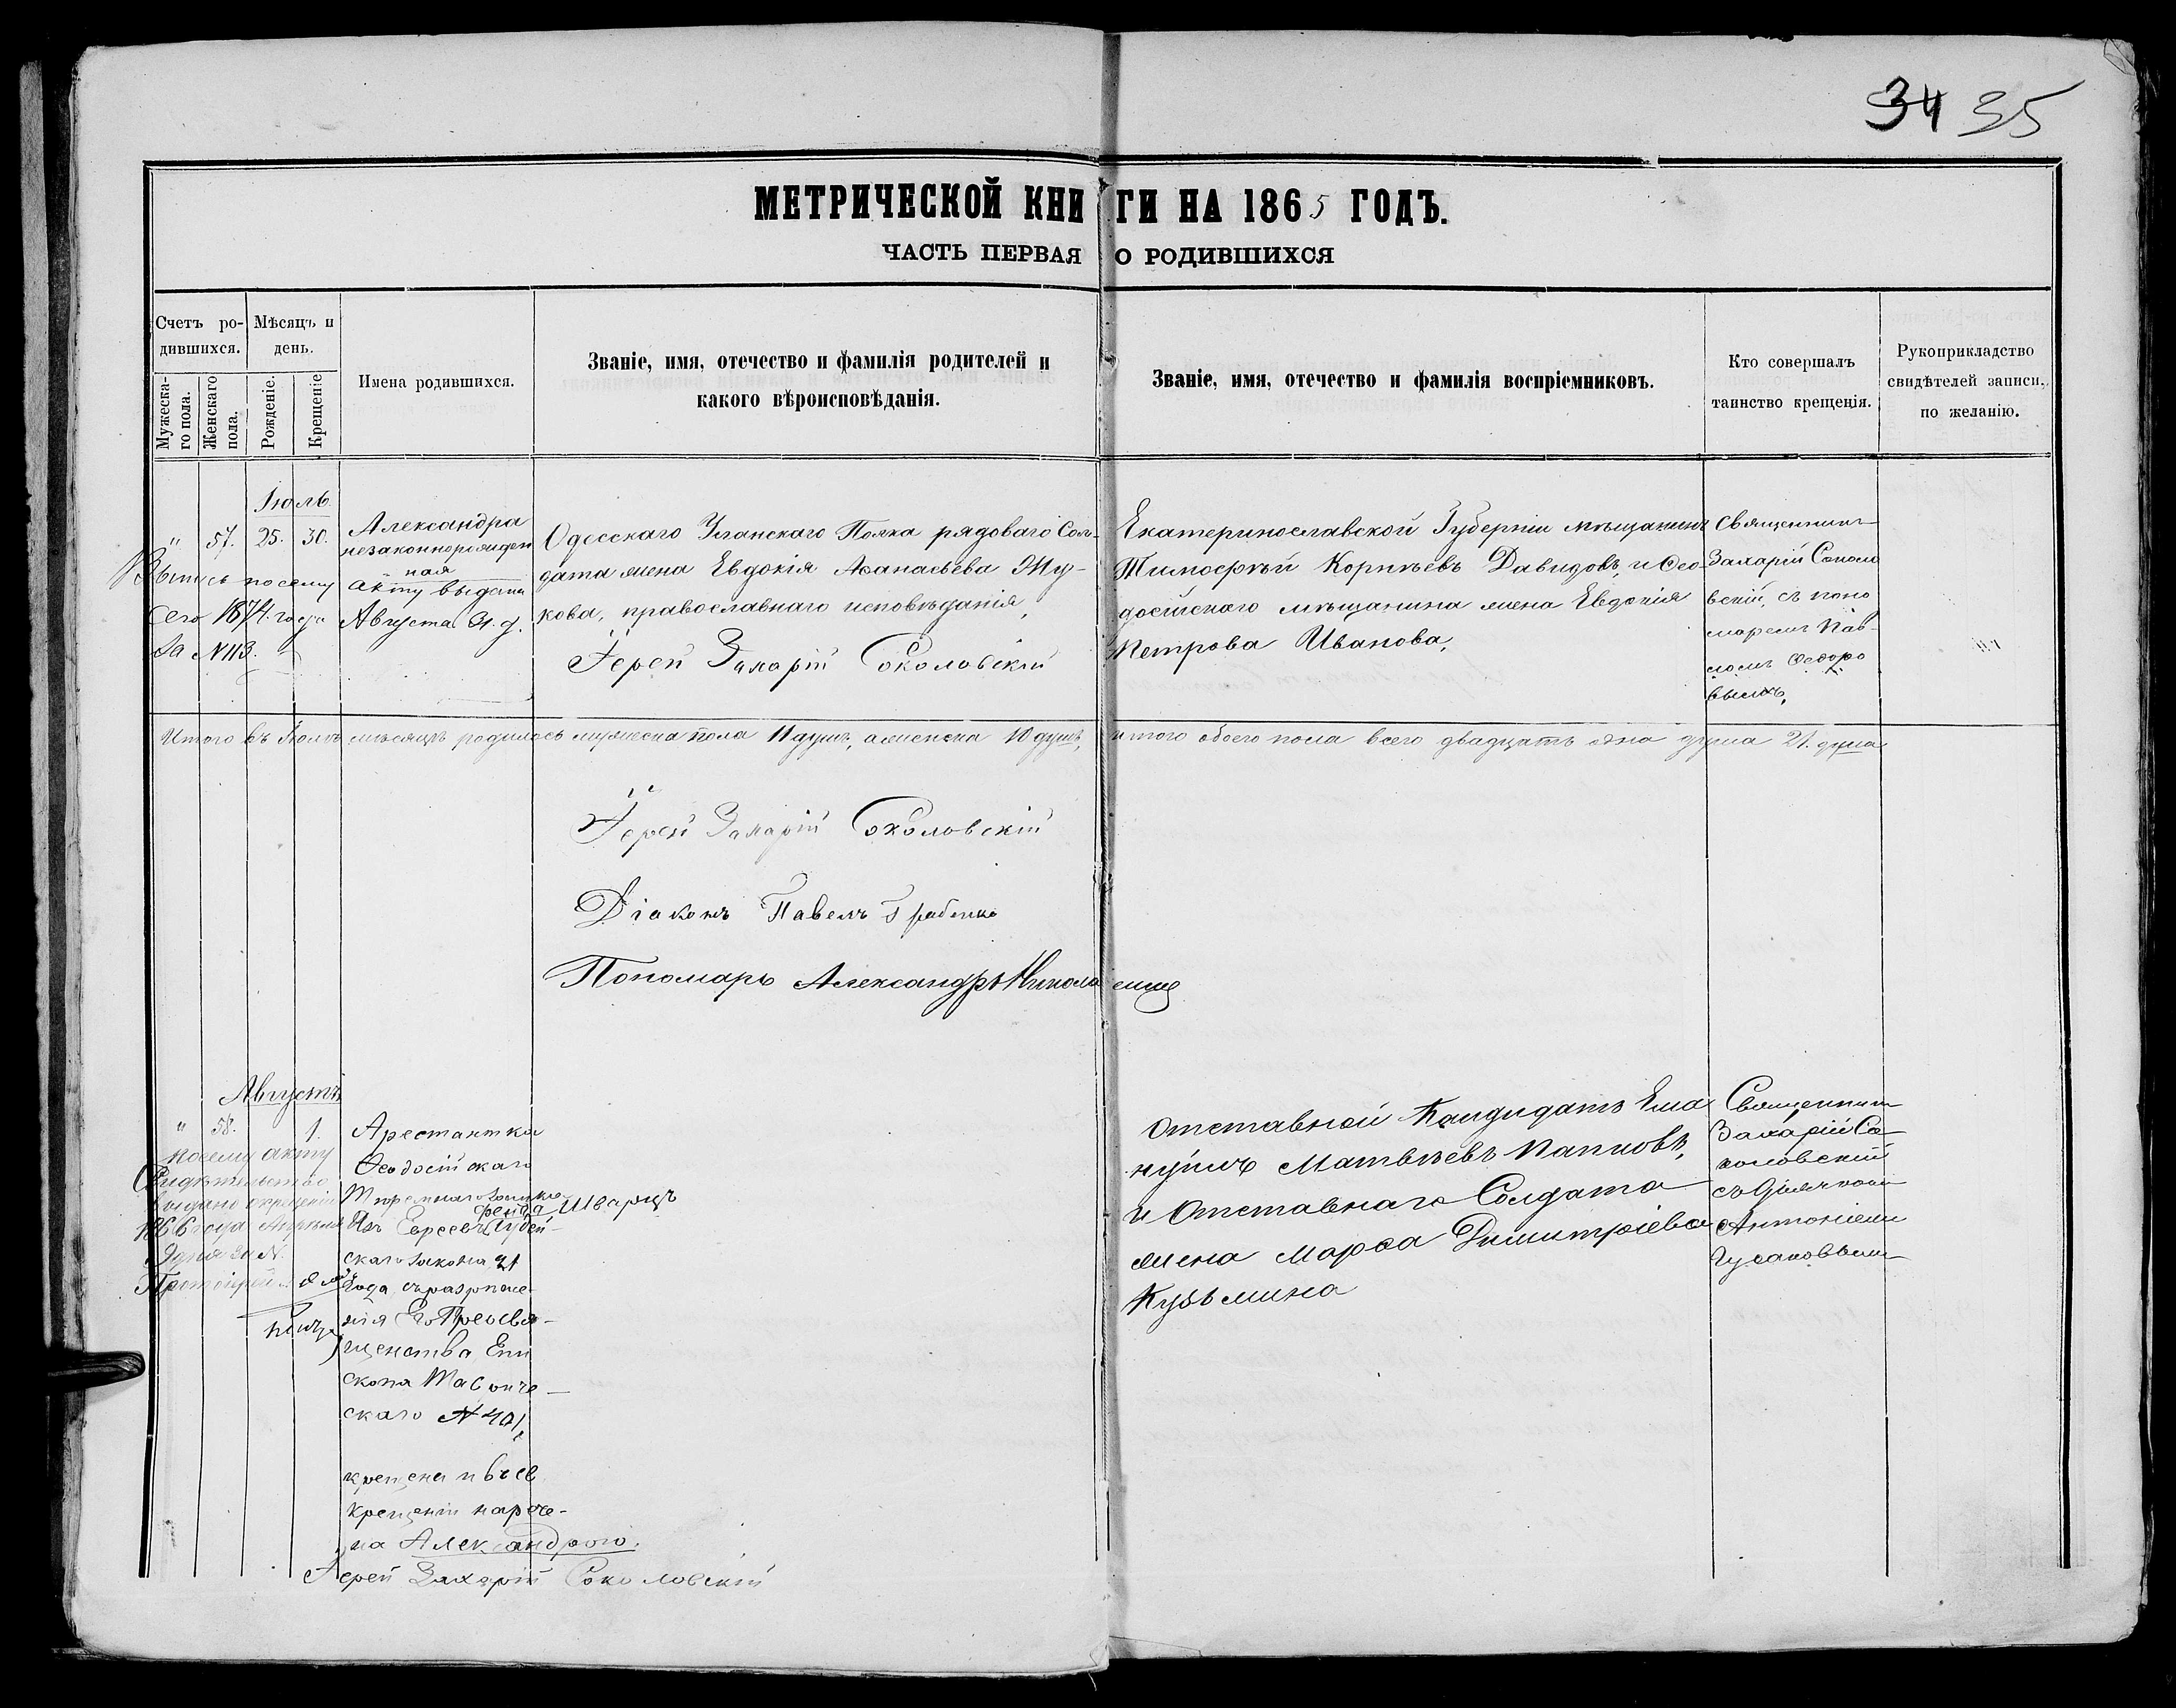 34 35
МЕТРИЧЕСКОЙ КНИГИ НА 1865 ГОДЪ.
ЧАСТЬ ПЕРВАЯ О РОДИВШИХСЯ
Счетъ ро-
дившихся.
Мѣсяцъ и
день.
Мужеска-
го пола.
Женскаго
пола.
Рожденіе.
Крещеніе
Имена родившихся.
Званіе, имя, отечество и фамилія родителей и
какого вѣроисповѣданія.
Званіе, имя, отечество и фамилія воспріемниковъ.
Кто совершалъ
таинство крещенія.
Рукоприкладство
свидѣтелей записи,
по желанію.
Іюль.
" 57. 25. 30.
Александра
незаконнорожден
ная
Выпись по сему акту выдана
сего 1874. года Августа 31. д.
За N 113.
Одесскаго Уланскаго Полка рядоваго Сол-
дата жена Евдокія Аѳанасьева Жу-
кова, православнаго исповѣданія,
Іерей Захарій Соколовскій
Екатеринославской Губерніи мѣщанинъ
Тимоѳей Корнѣевъ Давидовъ, и Ѳео-
досійскаго мѣщанина жена Евдокія
Петрова Иванова,
Священникъ
Захарій Соколо
вскій, съ поно
маремъ Пав-
ломъ Ѳедоро
вымъ,
Итого въ Іюлѣ мѣсяцѣ родилось мужеска пола 11 душъ, а женска 10 душъ, итого обоего пола всего двадцать одна душа 21. душа
Іерей Захарій Соколовскій
Діаконъ Павелъ
Пономарь Александръ
Августъ
" 58. 1.
По сему акту
Свидѣтельство
выдано о крещеніи
1866 года Апрѣля
9 дня за N.
Протоіерей
Арестантка
Ѳеодосійскаго
Тюремнаго замка
Фейга Шварцъ
Изъ Евреевъ Іудей-
скаго закона, 21
года, съ разрѣше-
нія Его Преосвя-
щенства Епи
скопа Тавриче-
скаго N 401,
крещена и въ св.
крещеніи нарече-
на Александрою.
Іерей Захарій Соколовскій
Отставной Кандидатъ Ема
нуилъ Матвѣевъ Папковъ,
и Отставнаго Солдата
жена Марѳа Димитріева
Кузьмина
Священникъ
Захарій Со
коловскій
съ Дьячкомъ
Антоніемъ
Гусаковымъ